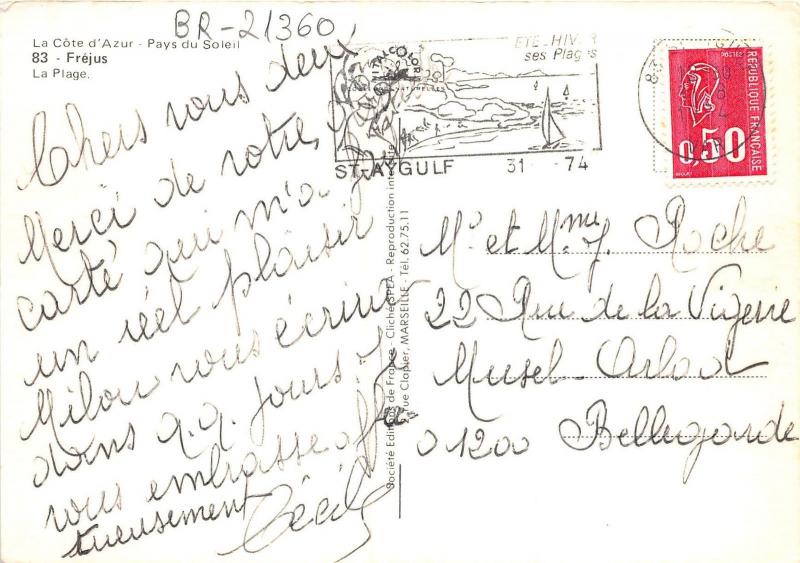 BR-21360
La Côte d'Azur - Pays du Soleil
83 - Fréjus
La Plage.
Chers vous deux
Merci de votre
carte qui m'a
un réel plaisir
Milou vous écrira
dans q.q. jours. J
vous embrasse affec
tueusement Cécile
ÉTÉ-HIVER
ses Plages
ST-AYGULF 31 - 74
Société Editions de France - Cliché SPEA - Reproduction interdite
rue Clapier, MARSEILLE - Tél. 62.75.11
POSTES
RÉPUBLIQUE FRANÇAISE
0,50
Mr et Mme J. Roche
22 Rue de la Vizerie
Musel-Arlod
01200 Bellegarde